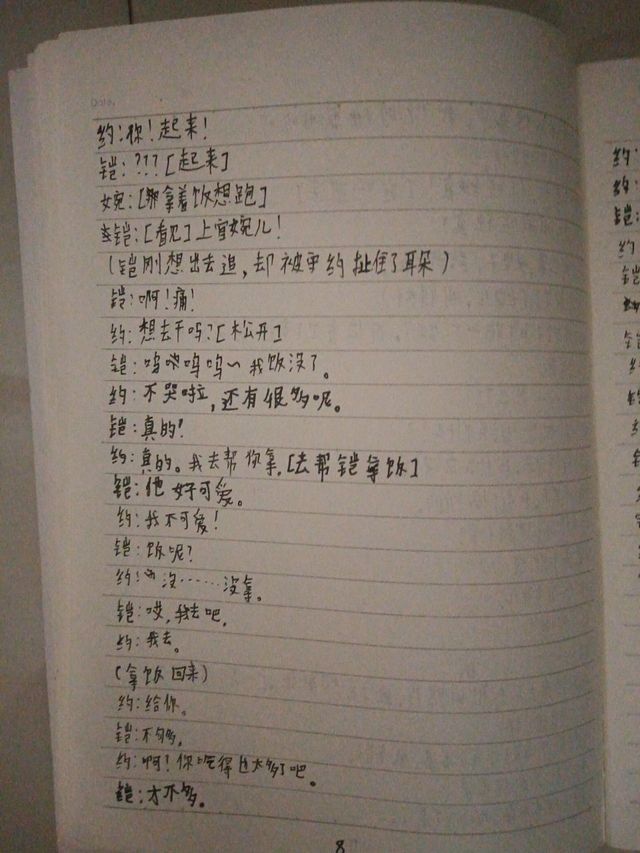 Date.
约:你!起来!
铠:???[起来]
婉:[拿着饭想跑]
铠:[看见]上官婉儿!
(铠刚想出去追,却被守约扯住了耳朵)
铠:啊!痛!
约:想去干吗?[松开]
铠:呜呜呜~我饭没了。
约:不哭啦,还有很多呢。
铠:真的?
约:真的。我去帮你拿,[去帮铠拿饭]
铠:他好可爱。
约:我不可爱!
铠:饭呢?
约:没……没拿。
铠:哎,我去吧,
约:我去。
(拿饭回来)
约:给你。
铠:不够,
约:啊?你吃得也太多了吧。
铠:才不多。
8
约:
约:
铠:
约
铠